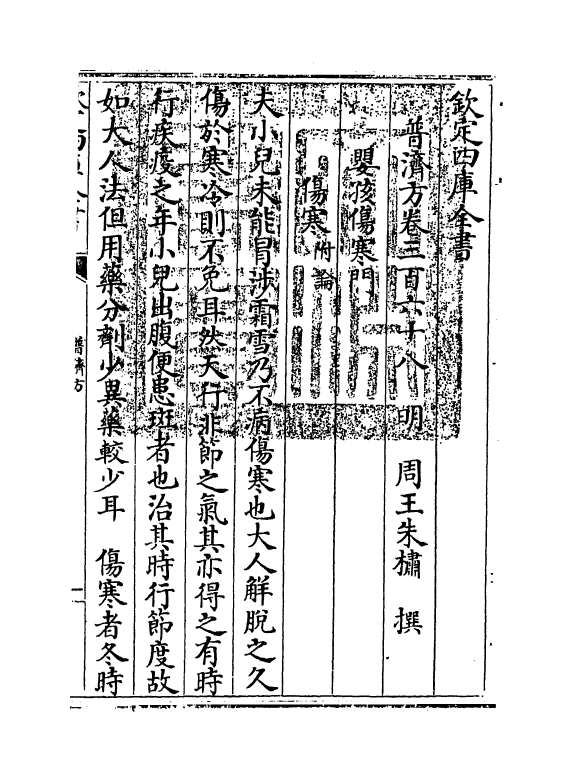 欽定四庫全書
普濟方卷三百六十八 明 周王朱橚 撰
嬰孩傷寒門
傷寒附論
夫小兒未能冒涉霜雪乃不病傷寒也大人觧脫之久
傷於寒冷則不免耳然天行非節之氣其亦得之有時
行疾疫之年小兒出腹便患斑者也治其時行節度故
如大人法但用藥分劑少異藥較少耳 傷寒者冬時
普濟方
一